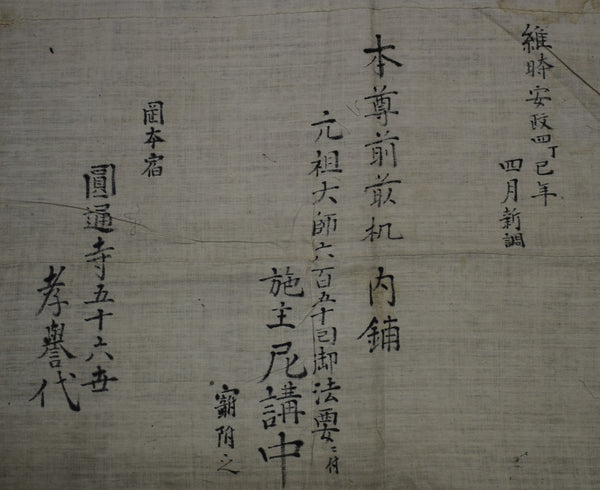 維時安政四丁巳年
四月新調
本尊前敷机 内鋪
元祖大師六百五十回御法要ニ付
施主尼講中
寄附之
岡本宿
圓通寺五十六世
孝譽代